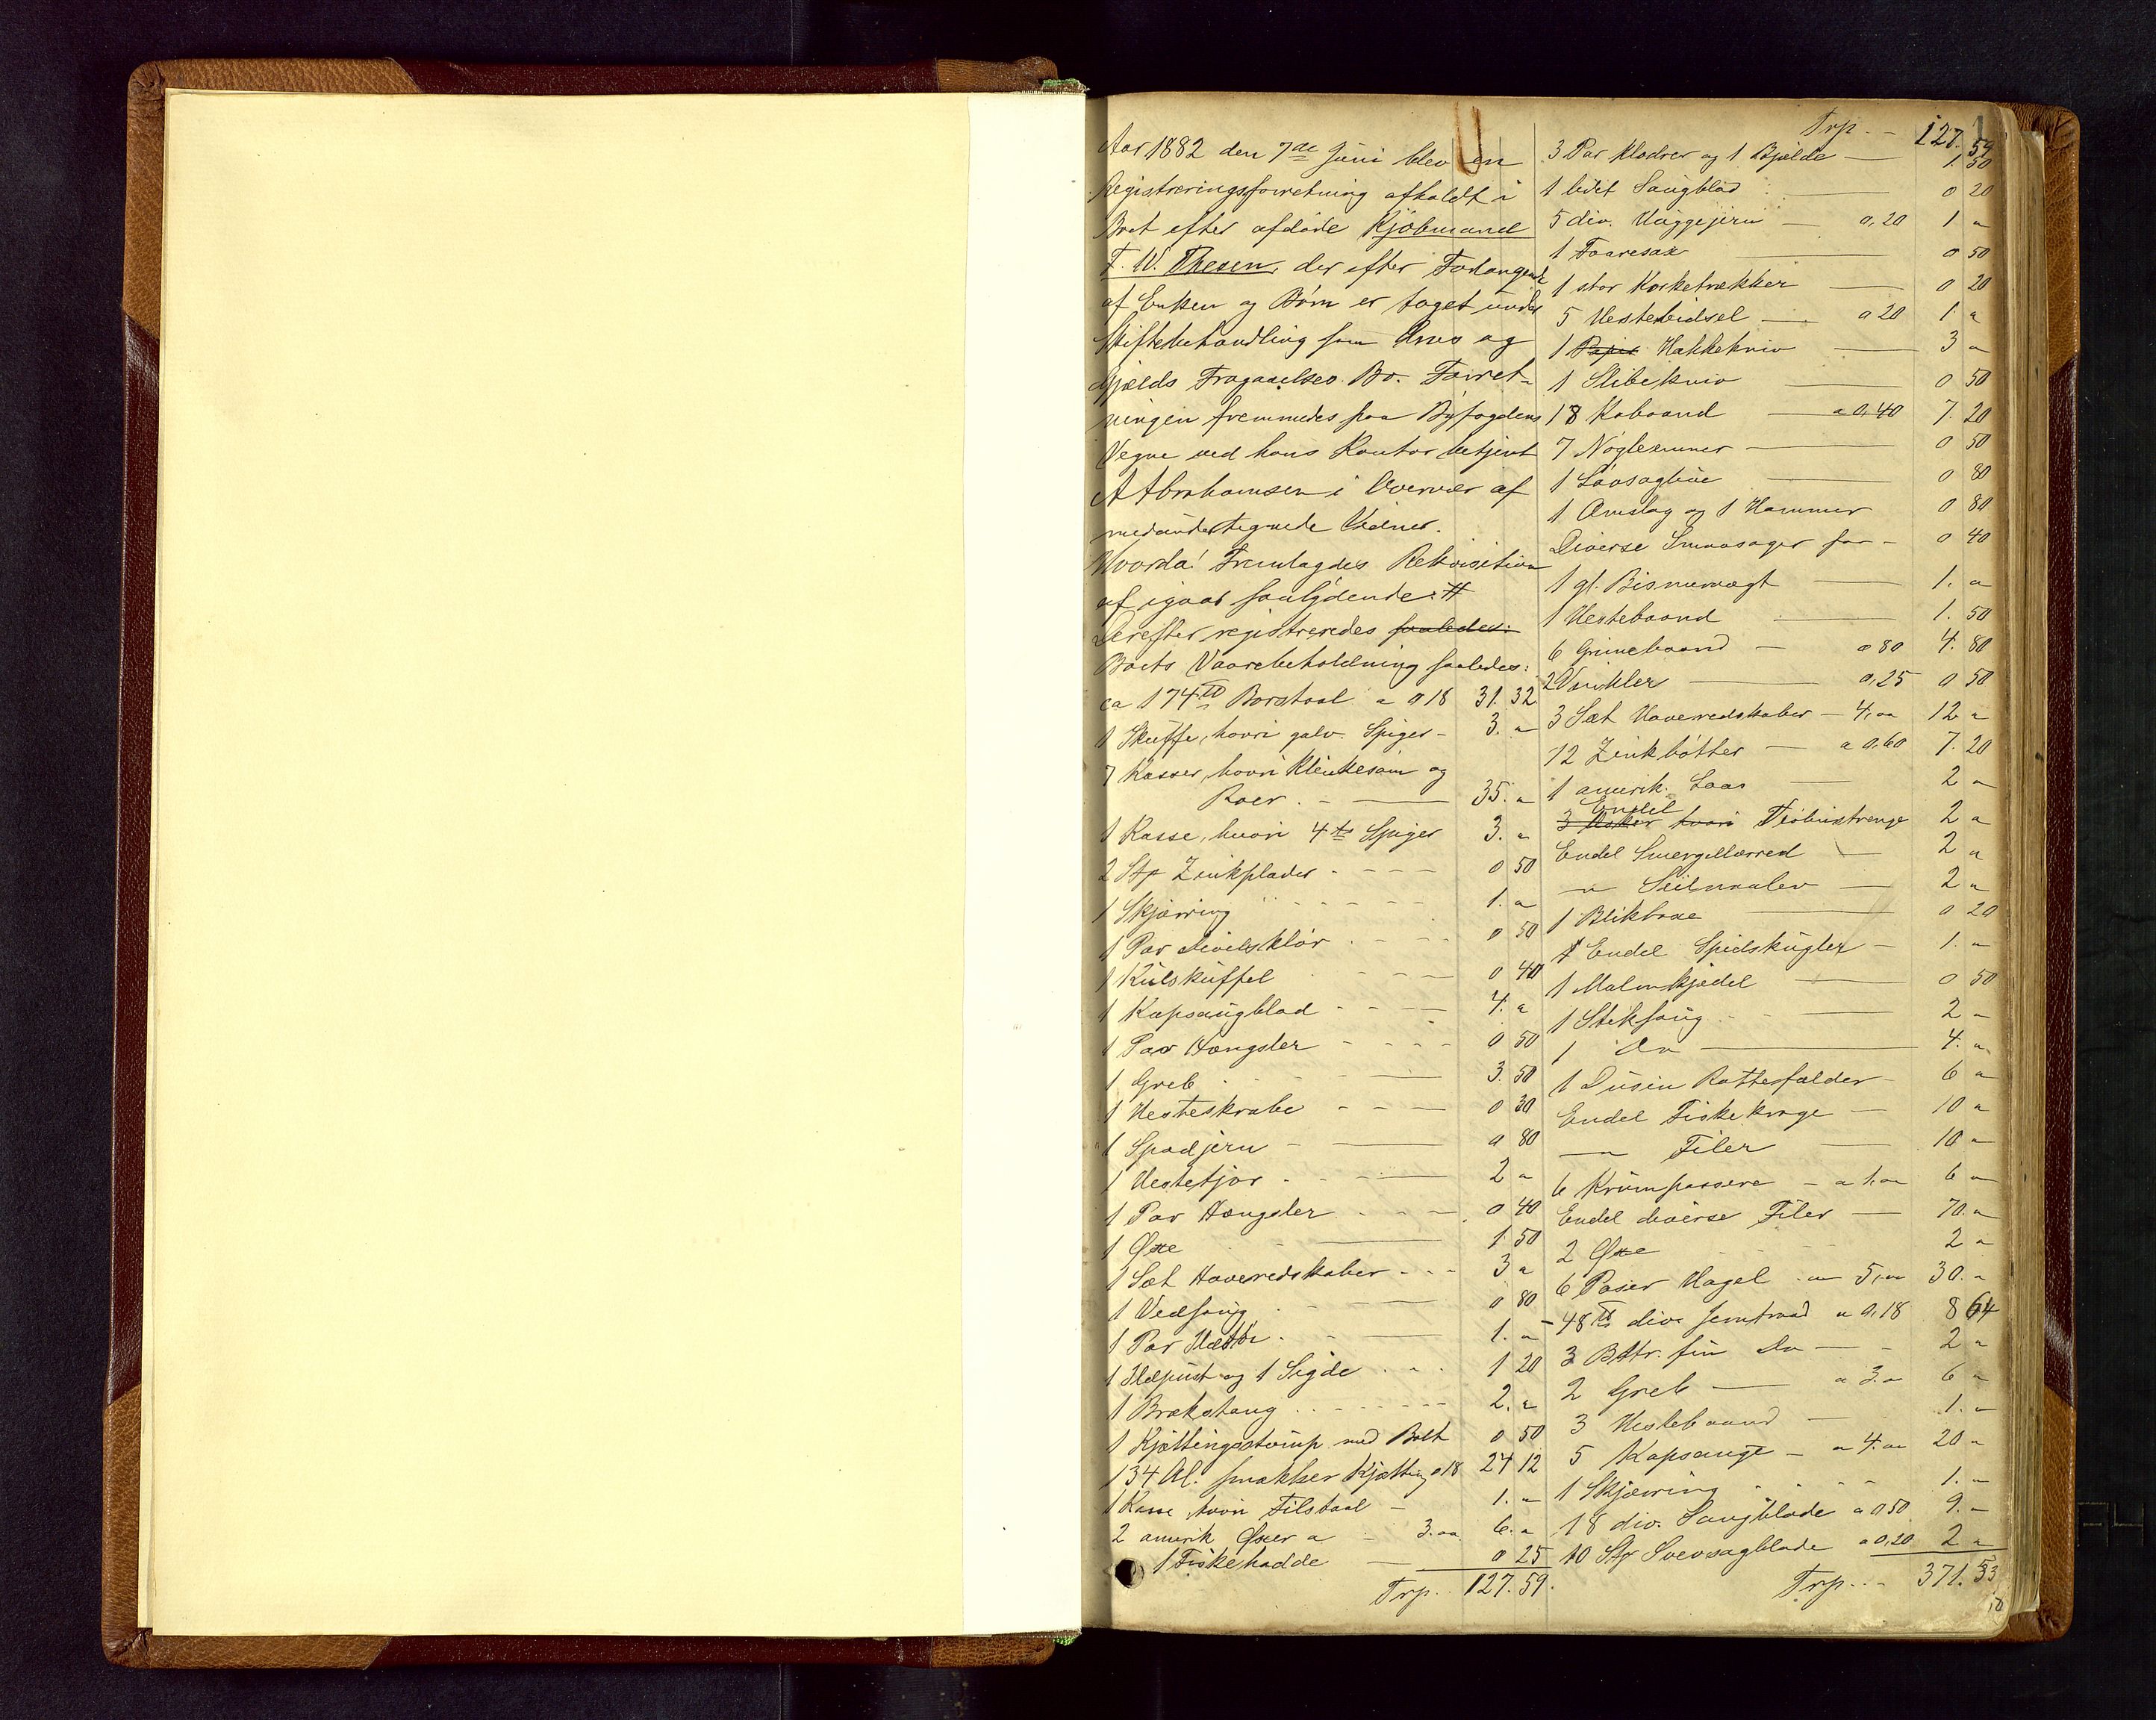 Aar 1882 den 7de Juni blev en
Registreringsforretning afholdt i
Boet efter afdöde Kjöbmand
F. W. Thesen, der efter Forlangende
af Enken og Börn er taget under
Skiftebehandling som Arvs og
Gjælds Fragaaelses Bo. Forret-
ningen fremmedes paa Byfogdens
Vegne ved hans Kontorbetjent
A Abrahamsen i Overvær af
medundertegnede Vidner.
Hvorda! Fremlagdes Rekvisition
af igaar saalydende: #
Derefter registreredes saaledes:
Boets Varebeholdning saaledes:
ca 174 ℔ Borstaal a 0 18 31. 32
1 Skuffe, hvori galv. Spiger - 3. "
7 Kasser, hvori Klinksöm og
Roer. - 35. "
1 Kasse, hvori 4 ts Spiger 3. "
2 Stp Zinkplader - 0 50
1 Skjærring 1. "
1 Par Divelsklör 0 50
1 Kulskuffel 0 40
1 Kapsaugblad 4. "
1 Par Hængsler 0 50
1 Greb 3. 50
1 Hesteskrabe 0 30
1 Spadjern 0 80
1 Hestetjor 2 "
1 Par Hængsler 0 40
1 Øxe 1. 50
1 Sæt Haveredskaber 3 "
1 Vedsaug 0 80
1 Par 1. "
1 Ildpust og 1 Sigde 1 20
1 Brækstang 2. "
1 Kjættingsstump med Bolt 0 50
134 Al. smækker Kjætting a 18 24 12
1 Kasse hvori Filstaal 1. "
2 amerik Øxer a 3. " 6. "
1 Fiskehadde 0 25
Trp. 127. 59.
Trp. - 127. 59
1
3 Par Klodrer og 1 Bjælde 1. 50
1 lidet Saugblad 0 20
5 div. Huggejern 0,20 1 "
1 Faaresax 0 50
1 stor Korketrækker 0 20
5 Hestebidsel a 20 1. "
1 Papir Hakkekniv 3 "
1 Slibekniv 0 50
18 Kobaand a 0,40 7. 20
7 Nöglemner 0 50
1 Lövsagbue 0 80
1 Omslag og 1 Hammer 0 80
Diverse Smaasager for - 0 40
1 gl. Bismervægt 1. "
1 Hestebaand 1. 50
6 Grimebaand a 80 4. 80
2 Vinkler 0,25 0 50
3 Sæt Haveredskaber - 4," 12 "
12 Zinkbötter a 0,60 7. 20
1 amerik. Laas 2 "
Endel
3 Æsker hvori Fiolinstrenge 2 "
Endel Smergellærred 2 "
" Seilnaaler 2 "
1 Blikboxe 0 20
1 Endel Spidskugler - 1. "
1 Malmkjedel 0 50
1 Stiksaug 2 "
1 Do 4. "
1 Dusin Rottesfælder - 6 "
Endel Fiskekroge 10 "
" Filer 10 "
6 Krumpassere - a 1." 6 "
Endel diverse Filer 70. "
2 Øxe 2 "
6 Poser Hagel a 5," 30. "
48 ℔ div Jerntraad a 0,18 8 64
3 Bttr. fin Do 2 "
2 Greb a 3." 6 "
3 Hestebaand 1. "
5 Kapsauge - a 4." 20 "
1 Skjærring 1. "
18 div. Saugblade a 0,50 9. "
10 Stp Svevsagblade a 0,20 2 "
Trp. - 371. 53